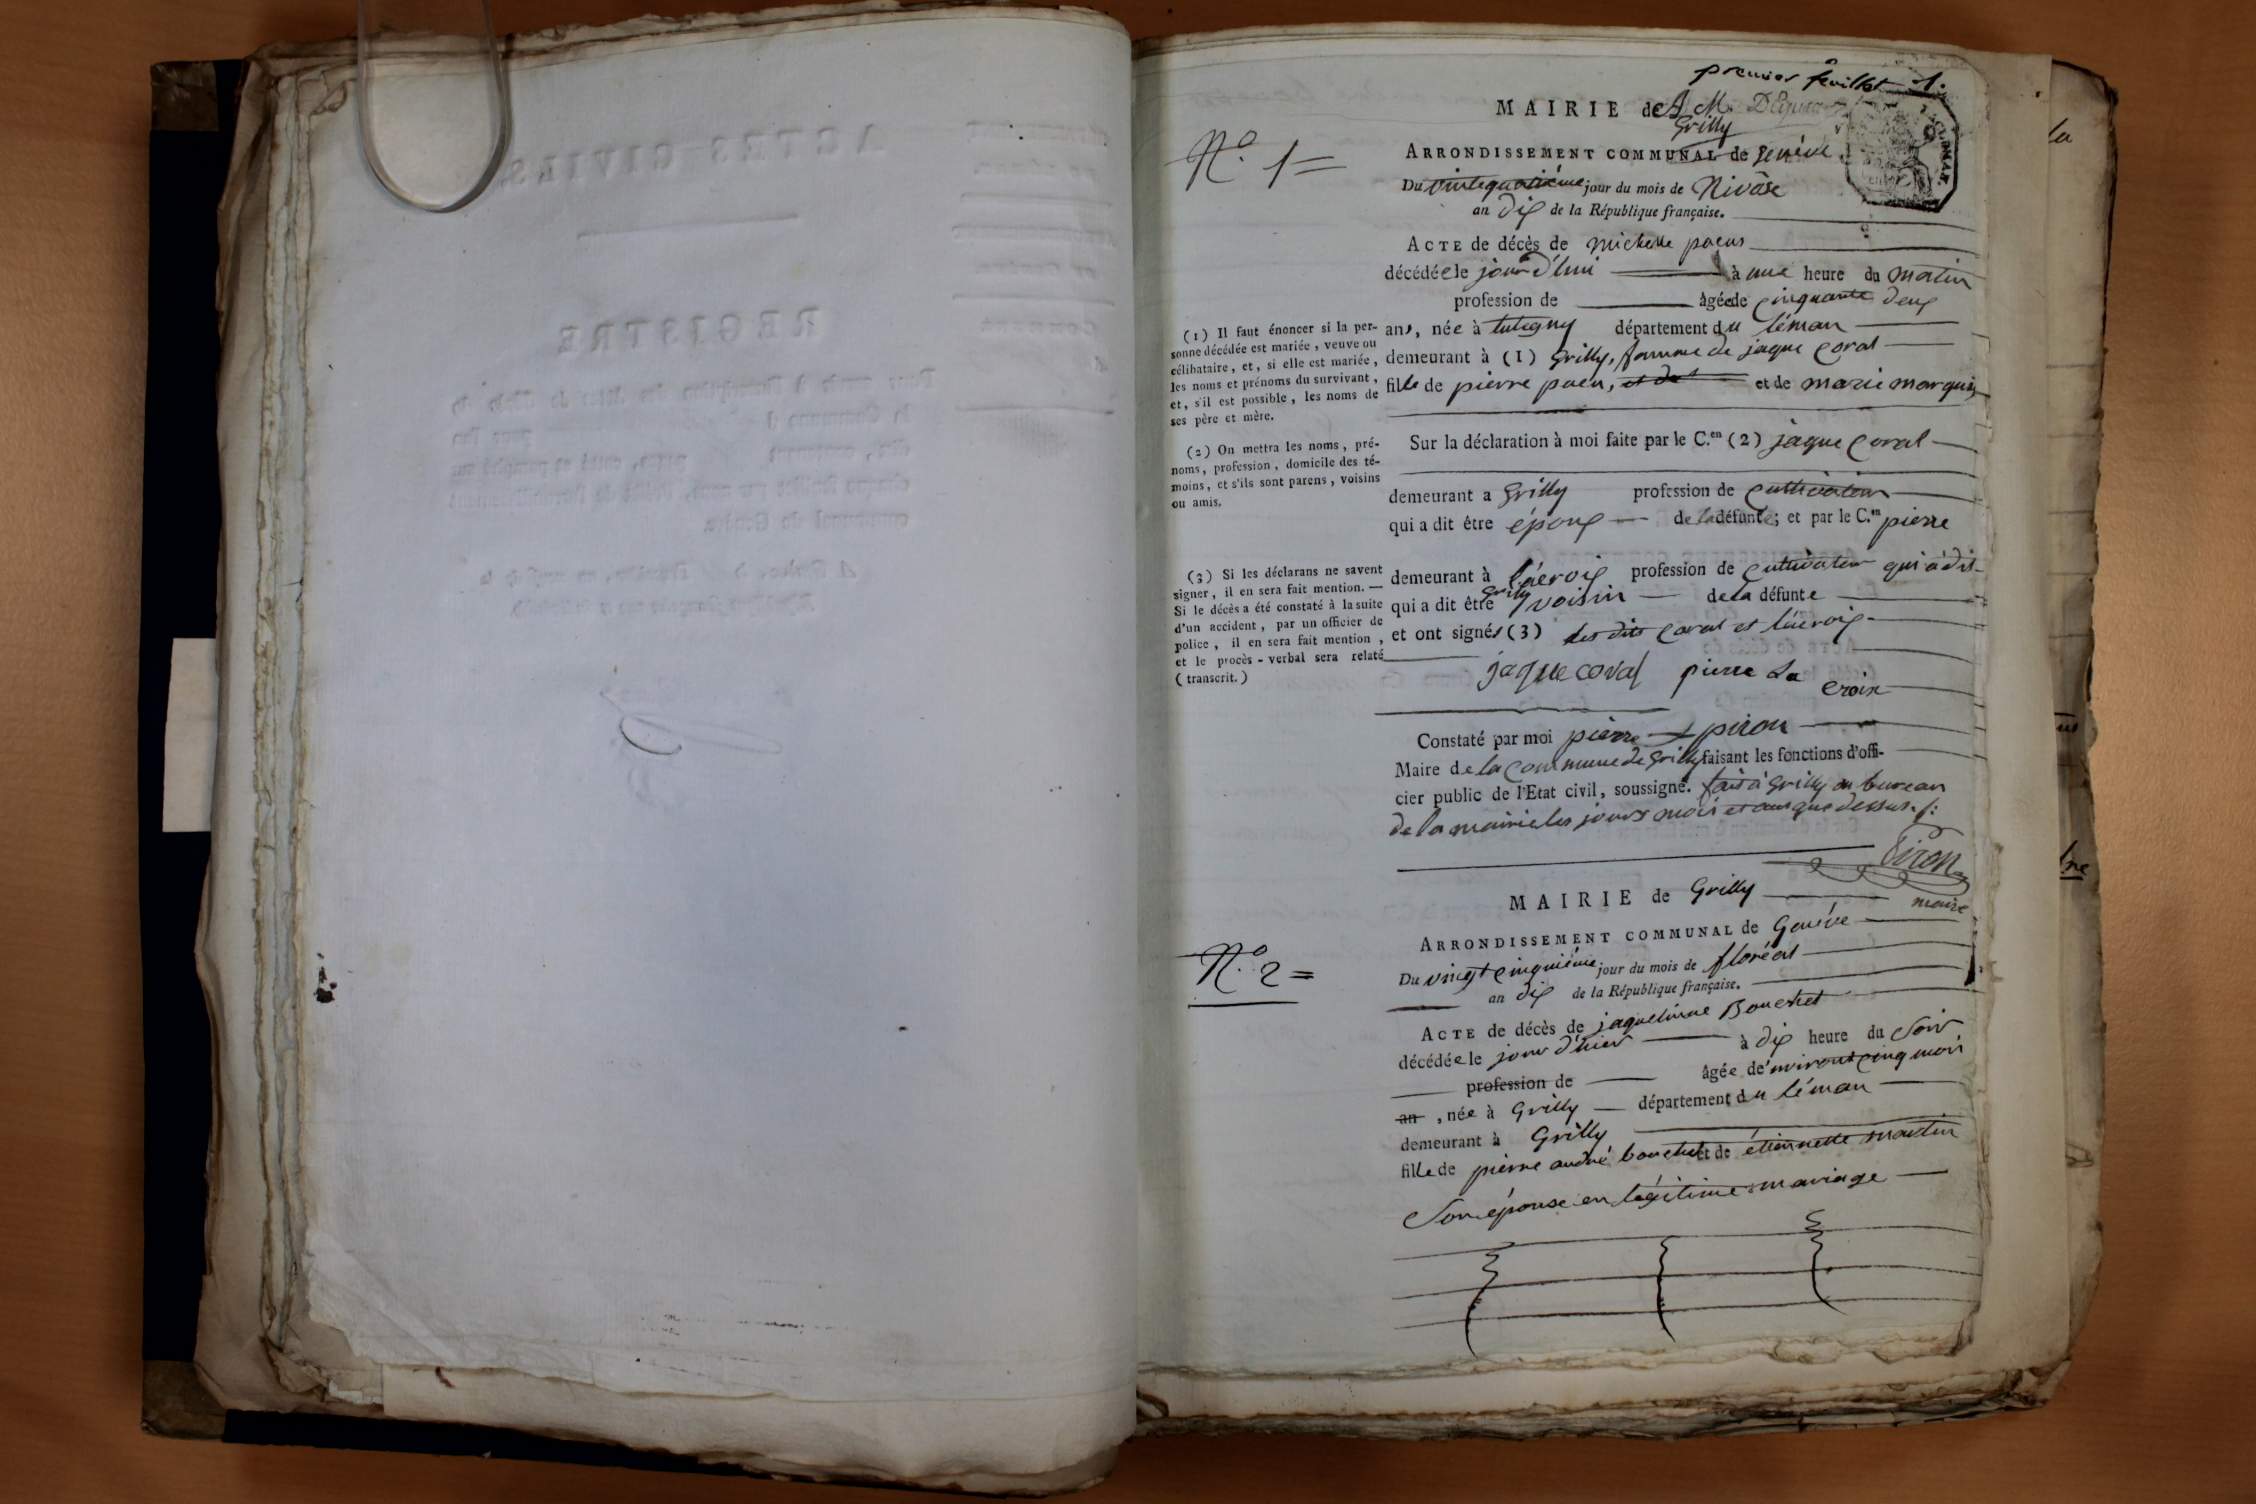 premier feuillet 1.
N.º 1=
MAIRIE de
Grilly
ARRONDISSEMENT COMMUNAL de Genêve
Du vintequatriéme jour du mois de Nivôse
an dix de la République française.
ACTE de décès de michelle
décédée le jour d'hui à une heure du matin
profession de âgée de cinquante deux
ans, née à département du léman
demeurant à (1) Grilly, femme de jaque Coral
fille de pierre et de marie marquis
(1) Il faut énoncer si la per-
sonne décédée est mariée, veuve ou
célibataire, et, si elle est mariée,
les noms et prénoms du survivant,
et, s'il est possible, les noms de
ses père et mère.
Sur la déclaration à moi faite par le C.en (2) jaque Coral
demeurant a Grilly profession de Cultivateur
qui a dit être époux de la défunte; et par le C.en pierre
(2) On mettra les noms, pré-
noms, profession, domicile des té-
moins, et s'ils sont parens, voisins
ou amis.
demeurant à lacroix profession de Cultivateur qui à dit
Grilly
qui a dit être voisin de la défunte
et ont signés (3) les dits Coral et lacroix
(3) Si les déclarans ne savent
signer, il en sera fait mention. —
Si le décès a été constaté à la suite
d'un accident, par un officier de
police, il en sera fait mention,
et le procès-verbal sera relaté
(transcrit.)
jaque coral pierre La croix
Constaté par moi pierre piron
Maire de la Commune de Grilly faisant les fonctions d'offi-
cier public de l'Etat civil, soussigné. fait à Grilly au bureau
de la mairie les jours mois et an que dessus.
Piron
maire
N.º 2=
MAIRIE de Grilly
ARRONDISSEMENT COMMUNAL de Genéve
Du vingt cinquiéme jour du mois de floréal
an dix de la République française.
ACTE de décès de jaquelinne Bouchet
décédée le jour d'hier à dix heure du Soir
profession de âgée d'environt cinq mois
an, née à Grilly département du léman
demeurant à Grilly
fille de pierre andré bouchet et de étiennette martin
Son épouse en légitime mariage